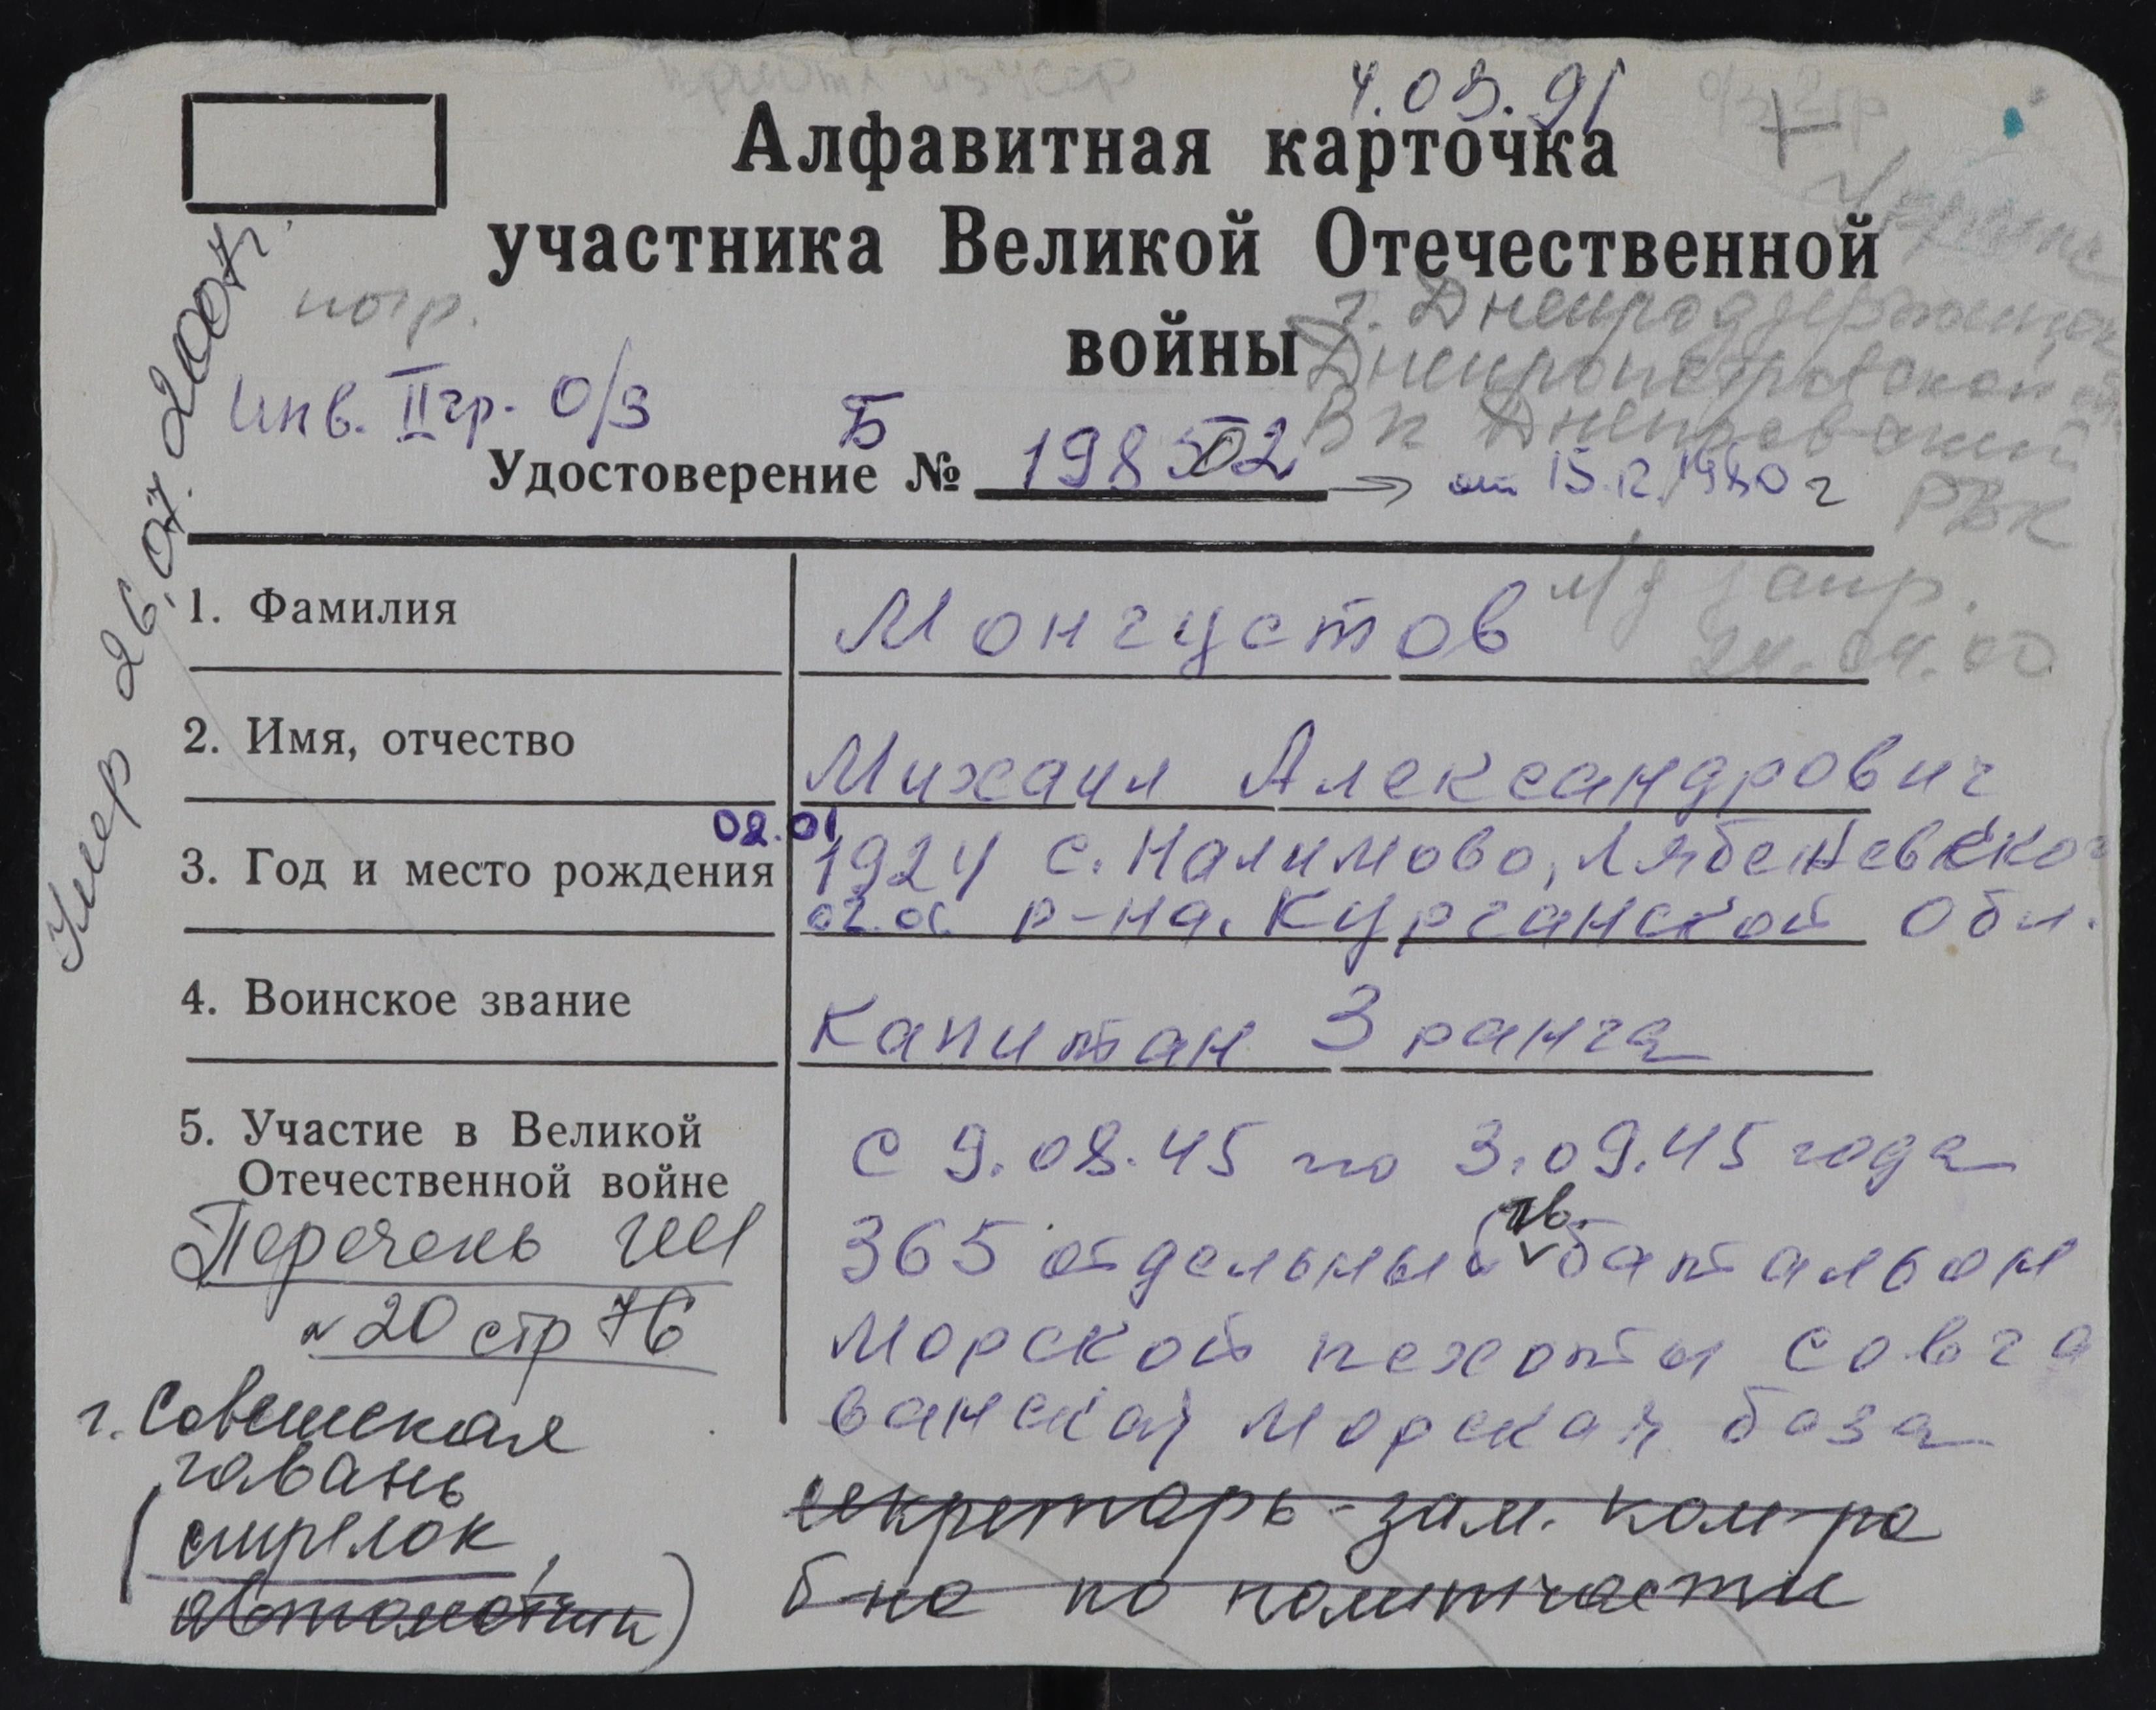 4.09.91
Алфавитная карточка
участника Великой Отечественной
войны
погр.
г. Днепродзержинск
Днепропетровской обл.
ВК Днепровский
РВК
Инв. II гр. О/З
Б
Удостоверение № 198502 → от 15.12.1980 г
Умер 26.07.2007г.
1. Фамилия Монгустов
запр.
24.04.00
2. Имя, отчество Михаил Александрович
02.01
3. Год и место рождения 1924 с. Налимово, Лябеневско
р-на. Курганской обл.
4. Воинское звание капитан 3 ранга
5. Участие в Великой
Отечественной войне
с 9.08.45 по 3.09.45 года
365 отдельный батальон
морской пехоты Совга
ванская морская база
секретарь-зам. ком-ра
б-на по политчасти
Перечень ГШ
№20 стр 76
г. Советская
гавань
(стрелок,
автоматчик)